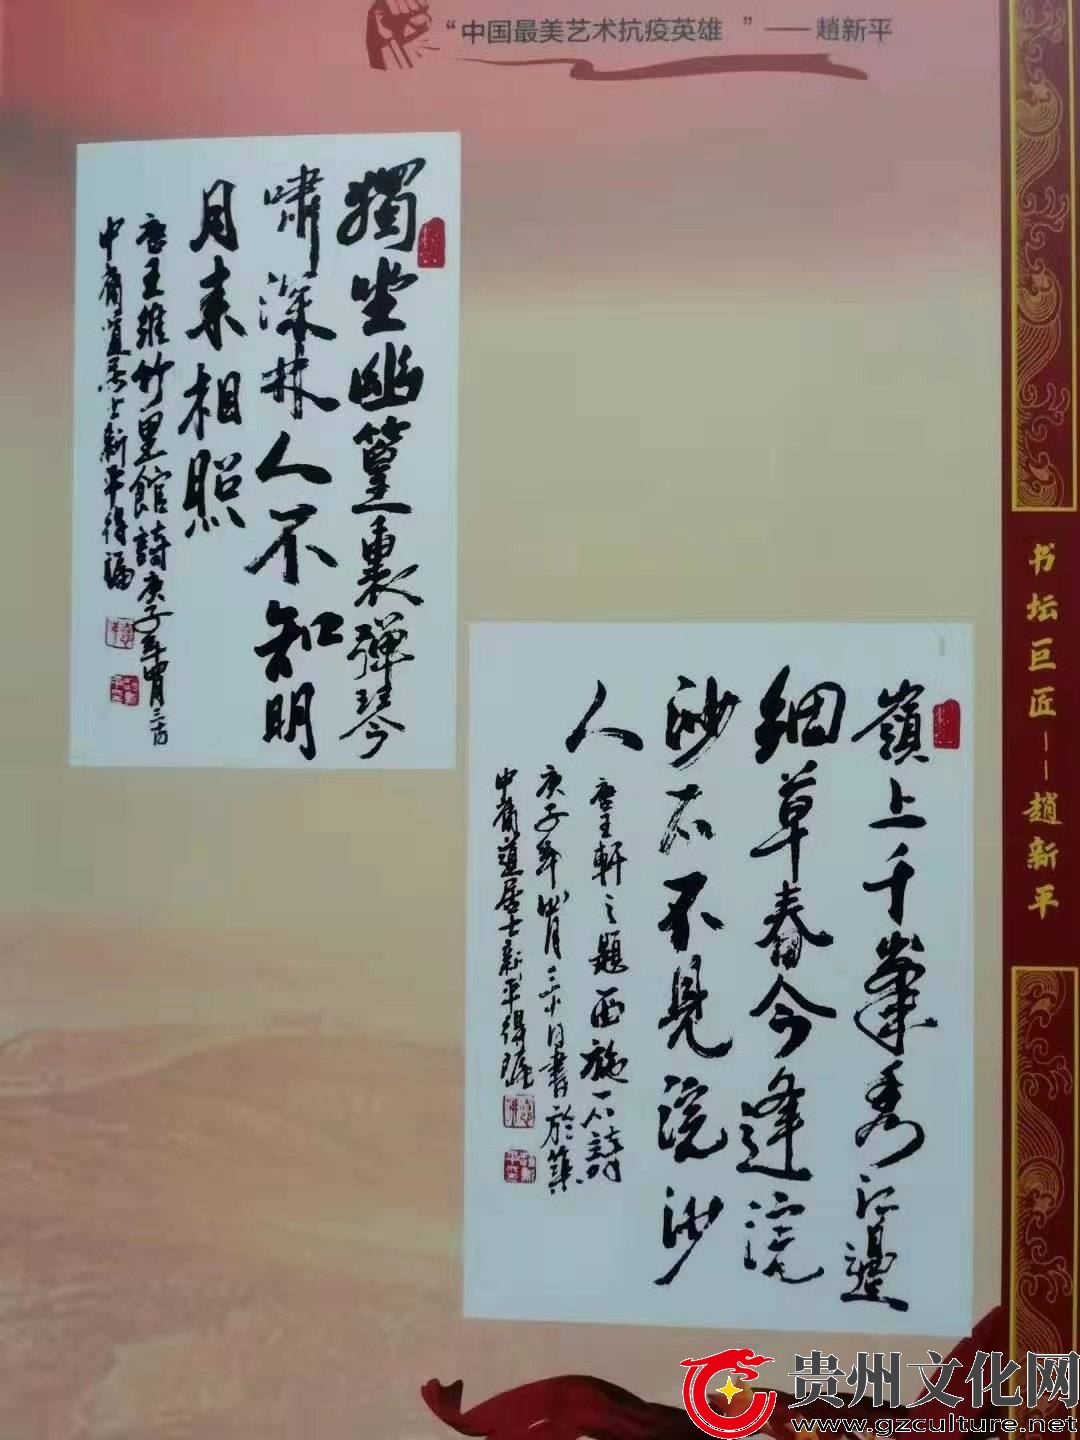 “中国最美艺术抗疫英雄 ”——趙新平
獨坐幽篁裏彈琴
嘯深林人不知明
月来相照
唐王維竹里館詩庚子年
居士新平
嶺上千峯秀江邊
細草春今逢浣
沙石不見浣沙
人
唐王軒之題西施石詩
庚子年 月三十日書於築
居士新平
书坛巨匠——趙新平
贵州文化网
www.gzculture.net